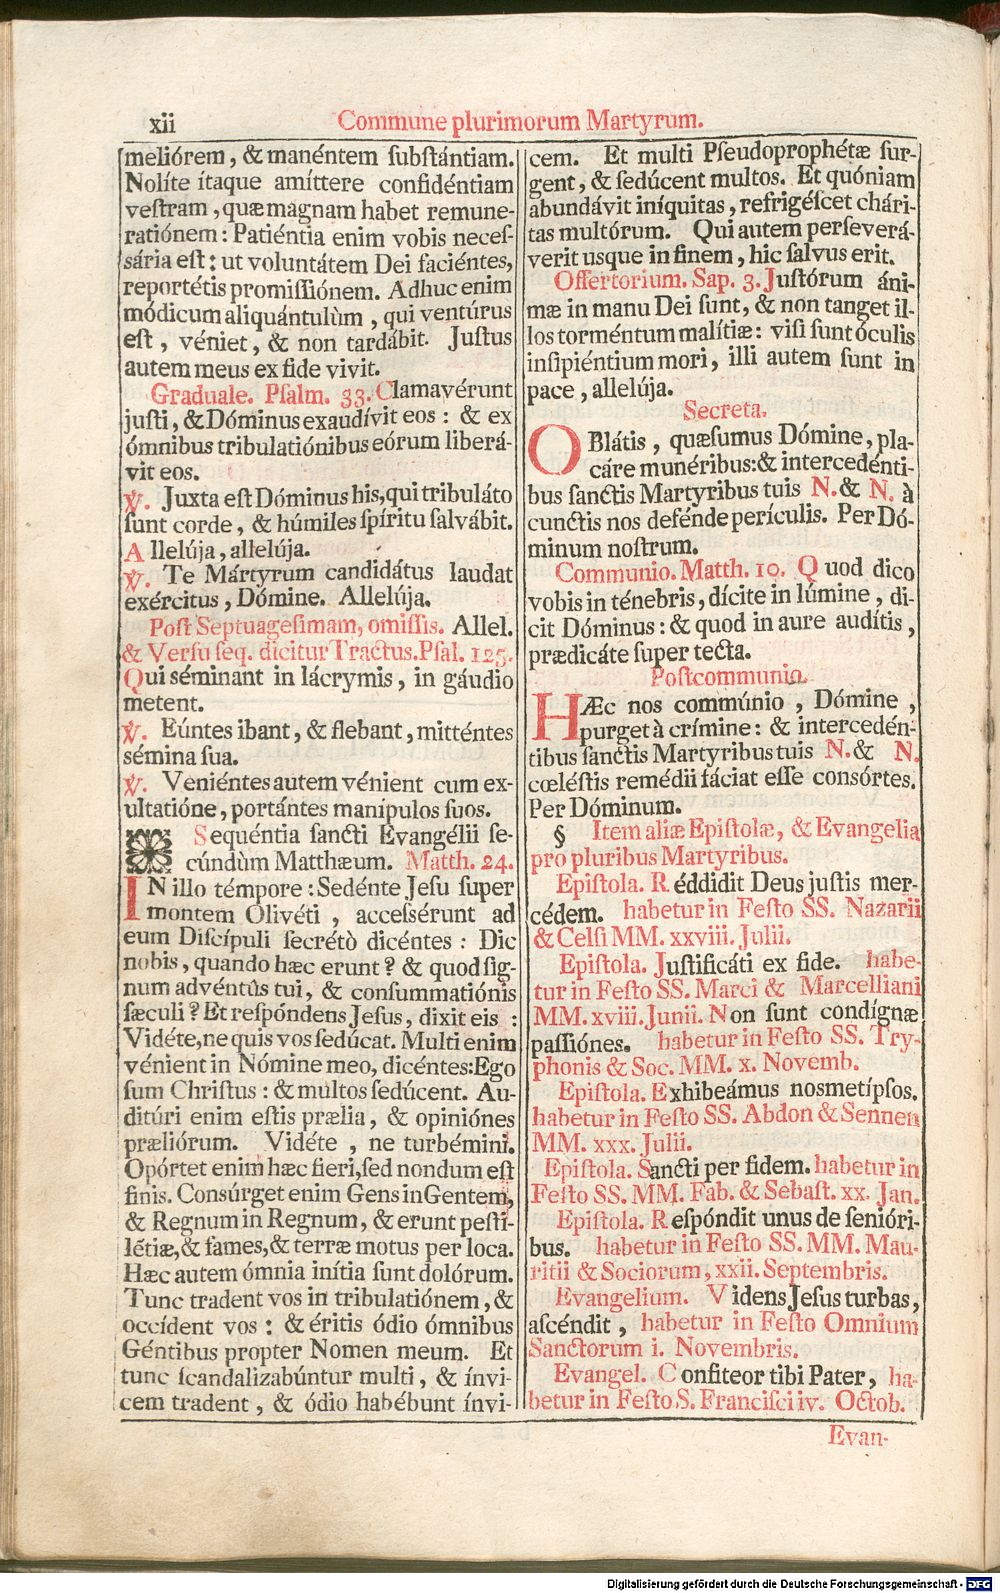 xii
Commune plurimorum Martyrum.
meliórem, & manéntem ſubſtántiam.
Nolíte ítaque amíttere confidéntiam
veſtram, quæ magnam habet remune-
ratiónem: Patiéntia enim vobis neceſ-
sária eſt: ut voluntátem Dei faciéntes,
reportétis promiſſiónem. Adhuc enim
módicum aliquántulùm, qui ventúrus
eſt, véniet, & non tardábit. Juſtus
autem meus ex fide vivit.
Graduale. Pſalm. 33. Clamavérunt
juſti, & Dóminus exaudívit eos: & ex
ómnibus tribulatiónibus eórum liberá-
vit eos.
℣. Juxta eſt Dóminus his, qui tribuláto
ſunt corde, & húmiles ſpíritu ſalvábit.
Allelúja, allelúja.
℣. Te Mártyrum candidátus laudat
exércitus, Dómine. Allelúja.
Poſt Septuageſimam, omiſſis. Allel.
& Verſu ſeq. dicitur Tractus. Pſal. 125.
Qui séminant in lácrymis, in gáudio
metent.
℣. Eúntes ibant, & flebant, mitténtes
sémina ſua.
℣. Veniéntes autem vénient cum ex-
ultatióne, portántes manípulos ſuos.
Sequéntia ſancti Evangélii ſe-
cúndùm Matthæum. Matth. 24.
IN illo témpore: Sedénte Jeſu ſuper
montem Olivéti, acceſsérunt ad
eum Diſcípuli ſecrétò dicéntes: Dic
nobis, quando hæc erunt? & quod ſig-
num advéntûs tui, & conſummatiónis
ſæculi? Et reſpóndens Jeſus, dixit eis:
Vidéte, ne quis vos ſedúcat. Multi enim
vénient in Nómine meo, dicéntes: Ego
ſum Chriſtus: & multos ſedúcent. Au-
ditúri enim eſtis prælia, & opiniónes
præliórum. Vidéte, ne turbémini.
Opórtet enim hæc fieri, ſed nondum eſt
finis. Consúrget enim Gens in Gentem,
& Regnum in Regnum, & erunt peſti-
létiæ, & fames, & terræ motus per loca.
Hæc autem ómnia inítia ſunt dolórum.
Tunc tradent vos in tribulatiónem, &
occídent vos: & éritis ódio ómnibus
Géntibus propter Nomen meum. Et
tunc ſcandalizabúntur multi, & ínvi-
cem tradent, & ódio habébunt ínvi-
cem. Et multi Pſeudoprophétæ ſur-
gent, & ſedúcent multos. Et quóniam
abundávit iníquitas, refrigéſcet chári-
tas multórum. Qui autem perſeverá-
verit usque in finem, hic ſalvus erit.
Offertorium. Sap. 3. Juſtórum áni-
mæ in manu Dei ſunt, & non tanget il-
los torméntum malítiæ: viſi ſunt óculis
inſipiéntium mori, illi autem ſunt in
pace, allelúja.
Secreta.
OBlátis, quæſumus Dómine, pla-
cáre munéribus: & intercedénti-
bus ſanctis Martyribus tuis N. & N. à
cunctis nos defénde perículis. Per Dó-
minum noſtrum.
Communio. Matth. 10. Quod dico
vobis in ténebris, dícite in lúmine, di-
cit Dóminus: & quod in aure audítis,
prædicáte ſuper tecta.
Poſtcommunio.
HÆc nos commúnio, Dómine,
purget à crímine: & intercedén-
tibus ſanctis Martyribus tuis N. & N.
cœléſtis remédii fáciat eſſe consórtes.
Per Dóminum.
§ Item aliæ Epiſtolæ, & Evangelia
pro pluribus Martyribus.
Epiſtola. Réddidit Deus juſtis mer-
cédem. habetur in Feſto SS. Nazarii
& Celſi MM. xxviii. Julii.
Epiſtola. Juſtificáti ex fide. habe-
tur in Feſto SS. Marci & Marcelliani
MM. xviii. Junii. Non ſunt condígnæ
paſſiónes. habetur in Feſto SS. Try-
phonis & Soc. MM. x. Novemb.
Epiſtola. Exhibeámus nosmetípſos.
habetur in Feſto SS. Abdon & Sennen
MM. xxx. Julii.
Epiſtola. Sancti per fidem. habetur in
Feſto SS. MM. Fab. & Sebaſt. xx. Jan.
Epiſtola. Reſpóndit unus de ſenióri-
bus. habetur in Feſto SS. MM. Mau-
ritii & Sociorum, xxii. Septembris.
Evangelium. Videns Jeſus turbas,
aſcéndit, habetur in Feſto Omnium
Sanctorum i. Novembris.
Evangel. Confiteor tibi Pater, ha-
betur in Feſto S. Franciſci iv. Octob.
Evan-
Digitalisierung gefördert durch die Deutsche Forschungsgemeinschaft - DFG